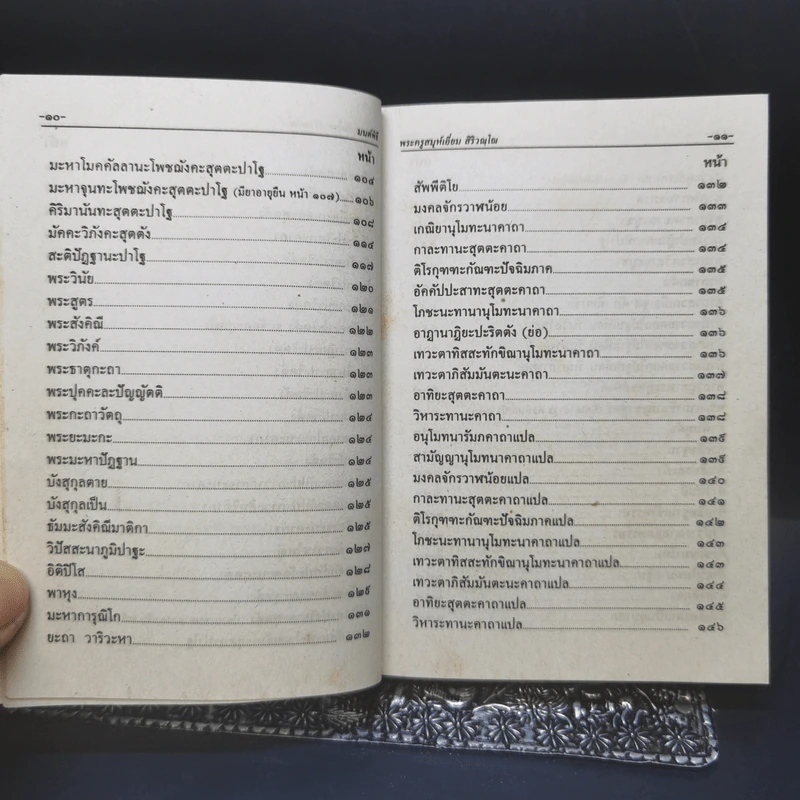 -๑๐-
มนต์พิธี
หน้า
มะหาโมคคัลลานะโพชฌังคะสุตตะปาโฐ ๑๐๔
มะหาจุนทะโพชฌังคะสุตตะปาโฐ (มียาอายุยืน หน้า ๑๐๗) ๑๐๖
คิริมานันทะสุตตะปาโฐ ๑๐๘
มัคคะวิภังคะสุตตัง ๑๑๔
สะติปัฏฐานะปาโฐ ๑๑๗
พระวินัย ๑๒๐
พระสูตร ๑๒๑
พระสังคิณี ๑๒๒
พระวิภังค์ ๑๒๓
พระธาตุกะถา ๑๒๓
พระปุคคะละปัญญัตติ ๑๒๓
พระกะถาวัตถุ ๑๒๔
พระยะมะกะ ๑๒๔
พระมะหาปัฏฐาน ๑๒๔
บังสุกุลตาย ๑๒๕
บังสุกุลเป็น ๑๒๕
ธัมมะสังคิณีมาติกา ๑๒๕
วิปัสสะนาภูมิปาฐะ ๑๒๗
อิติปิโส ๑๒๘
พาหุง ๑๒๙
มะหาการุณิโก ๑๓๑
ยะถา วาริวะหา ๑๓๒
พระครูสมุห์เอี่ยม สิริวณฺโณ
-๑๑-
หน้า
สัพพีติโย ๑๓๒
มงคลจักรวาฬน้อย ๑๓๓
เกณิยานุโมทะนาคาถา ๑๓๔
กาละทานะสุตตะคาถา ๑๓๔
ติโรกุฑฑะกัณฑะปัจฉิมภาค ๑๓๕
อัคคัปปะสาทะสุตตะคาถา ๑๓๕
โภชะนะทานานุโมทะนาคาถา ๑๓๖
อาฏานาฏิยะปะริตตัง (ย่อ) ๑๓๖
เทวะตาทิสสะทักขิณานุโมทะนาคาถา ๑๓๖
เทวะตาภิสัมมันตะนะคาถา ๑๓๗
อาทิยะสุตตะคาถา ๑๓๘
วิหาระทานะคาถา ๑๓๘
อนุโมทนารัมภคาถาแปล ๑๓๙
สามัญญานุโมทนาคาถาแปล ๑๓๙
มงคลจักรวาฬน้อยแปล ๑๔๐
กาละทานะสุตตะคาถาแปล ๑๔๑
ติโรกุฑฑะกัณฑะปัจฉิมภาคแปล ๑๔๒
โภชะนะทานานุโมทะนาคาถาแปล ๑๔๓
เทวะตาทิสสะทักขิณานุโมทะนาคาถาแปล ๑๔๓
เทวะตาภิสัมมันตะนะคาถาแปล ๑๔๔
อาทิยะสุตตะคาถาแปล ๑๔๕
วิหาระทานะคาถาแปล ๑๔๖